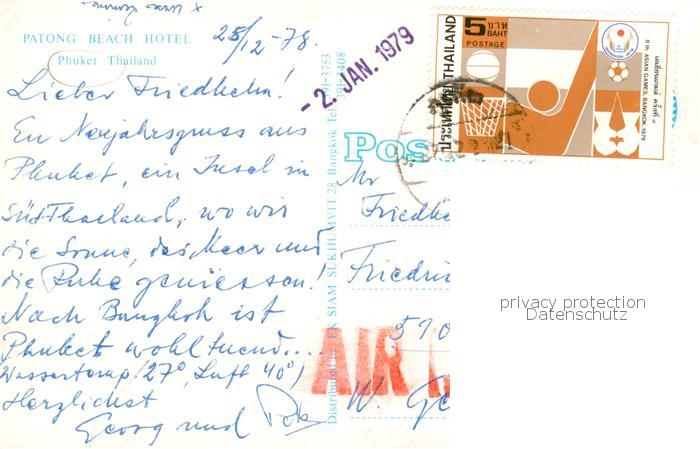 PATONG BEACH HOTEL
Phuket Thailand
25/12-78.
Lieber Friedhelm!
En Neujahrsgruss aus
Phuket, ein Insel in
südThaeland, wo wir
die Sonne, das Meer und
die Ruhe geniessen!
Nach Bangkok ist
Phuket wohltuend....
Wassertemp 27°, Luft 40°)
Herzlichst
Georg und
- 2. JAN. 1979
Distributed by EK SIAM SUKHUMVIT 28 Bangkok Tel. 391-3753
391-3408
Pos
Mr
Friedhe
Friedri
590
W. Ge
AIR
5 บาท
BAHT
POSTAGE
ประเทศไทย THAILAND
เอเชี่ยนเกมส์ ครั้งที่ ๘
8 th ASIAN GAMES, BANGKOK, 1978
privacy protection
Datenschutz